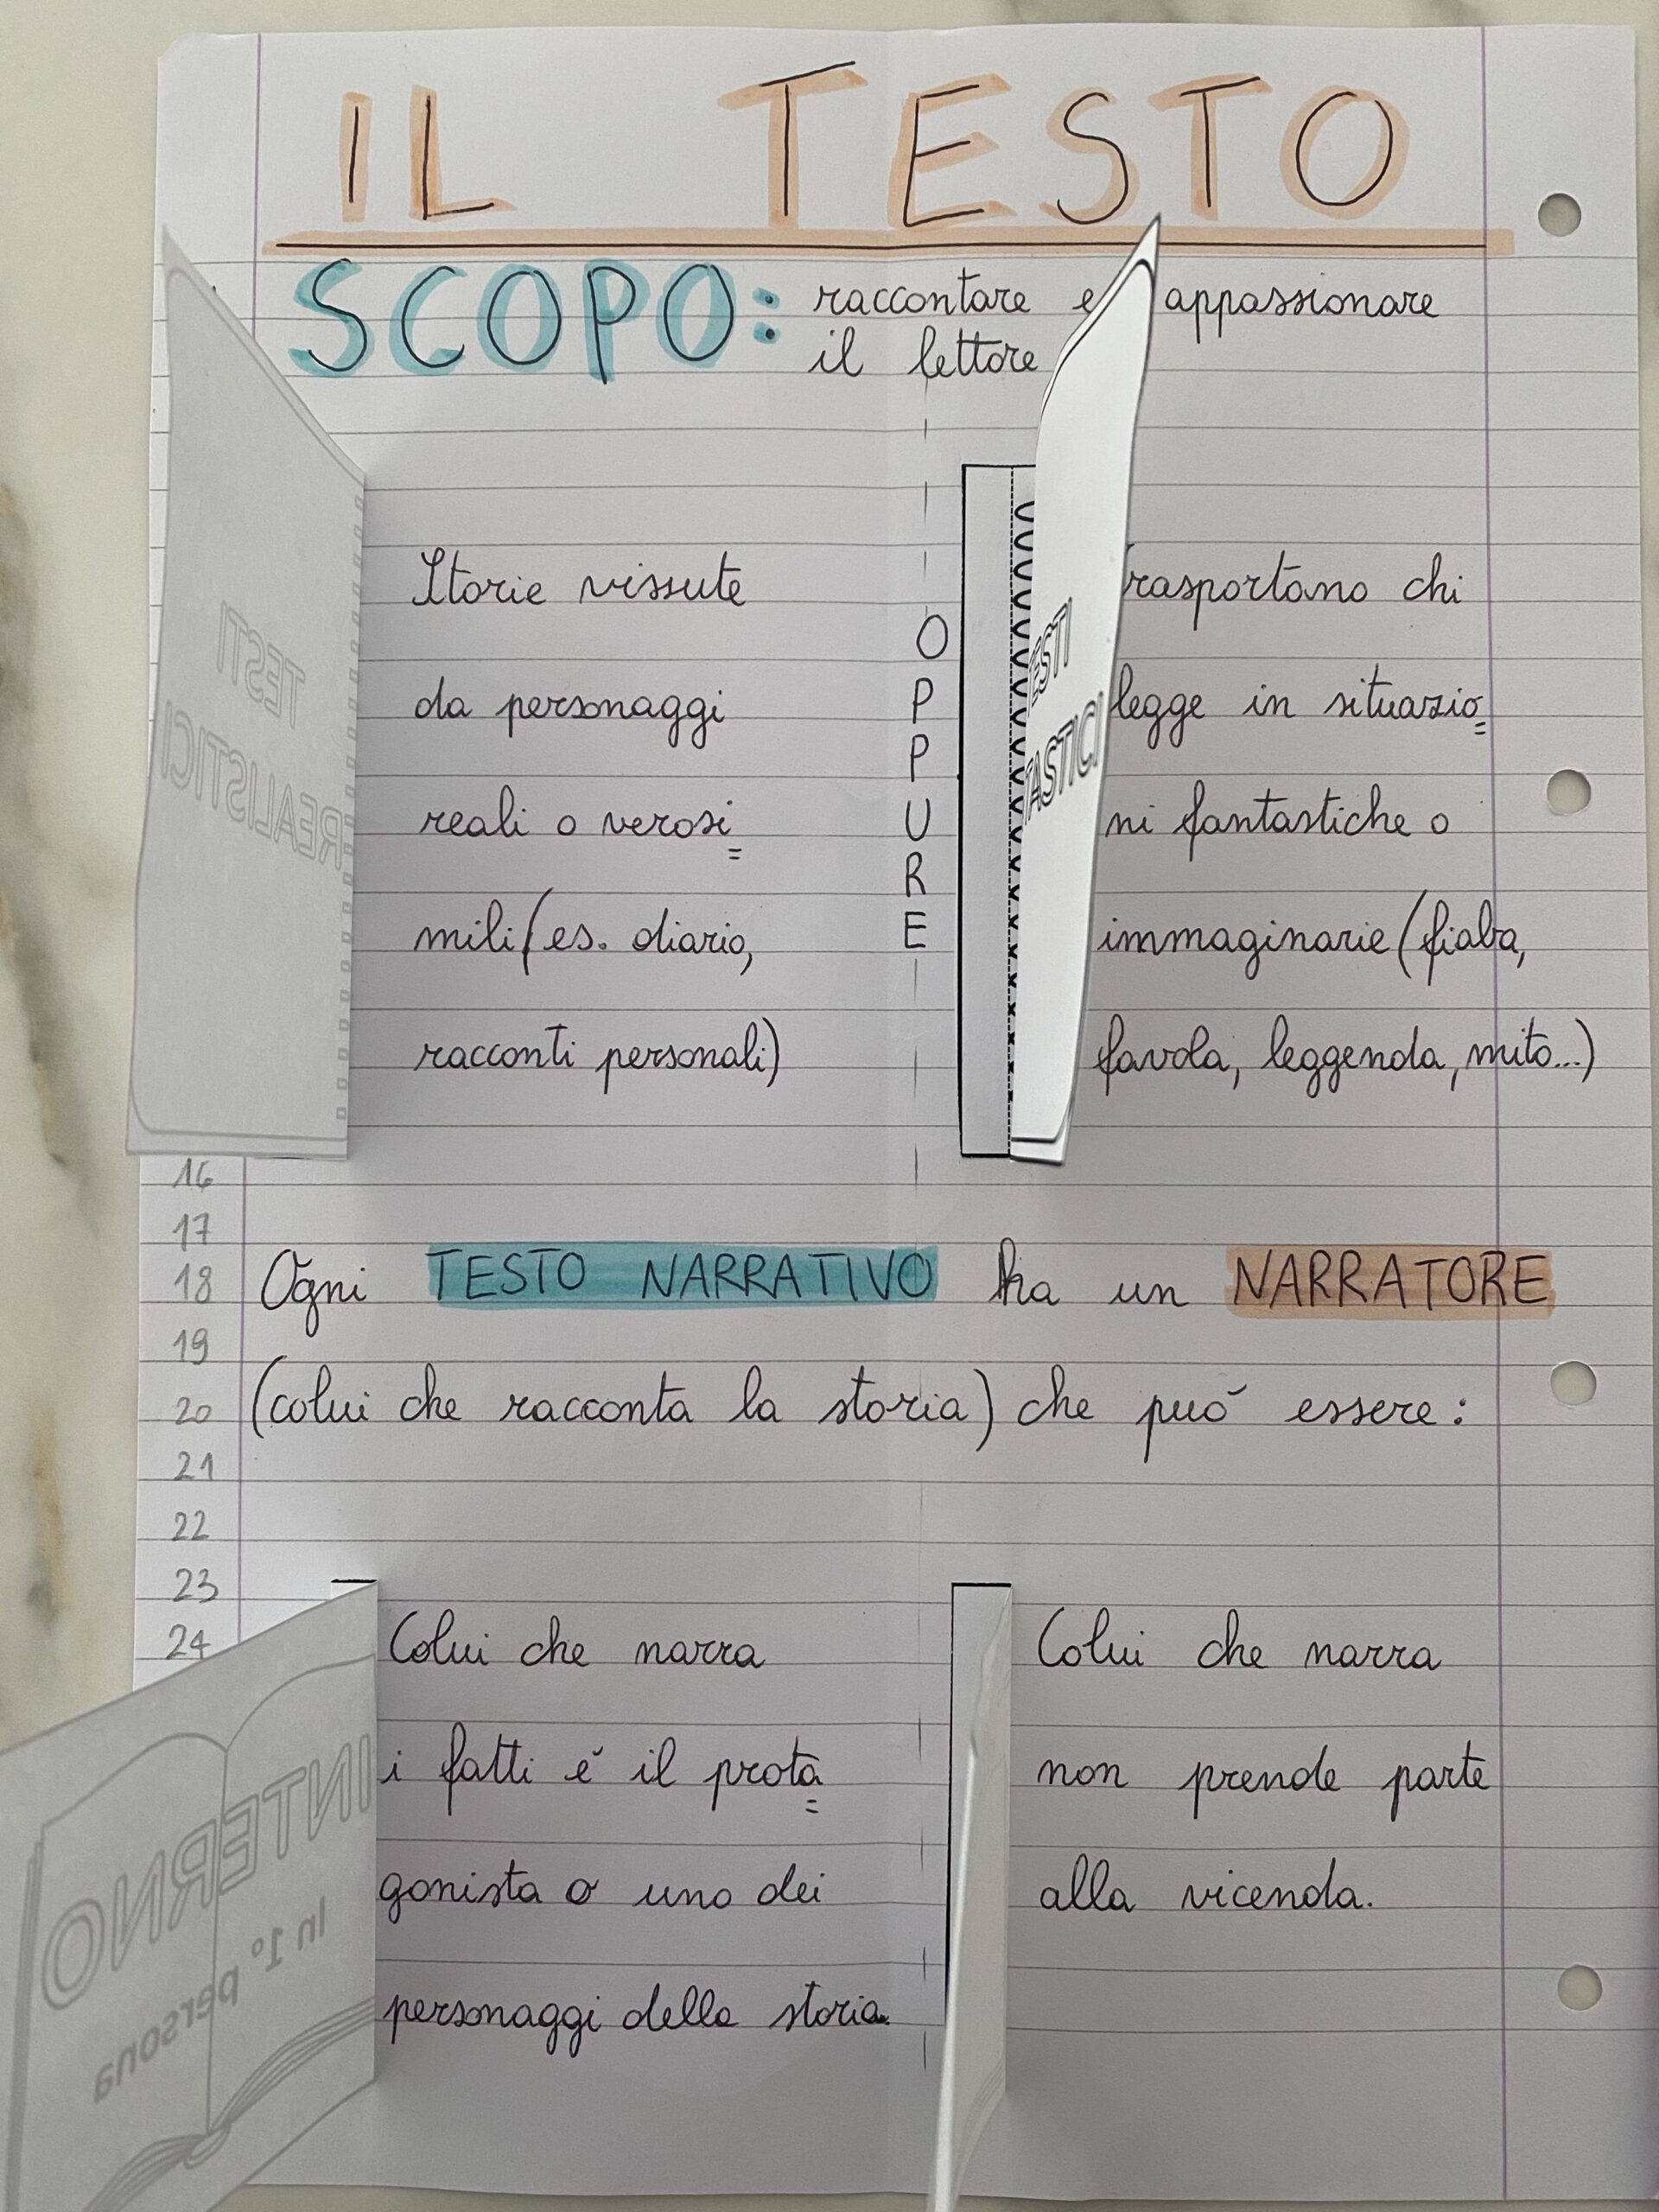 IL TESTO
SCOPO: raccontare e appassionare
il lettore
TESTI
REALISTICI
Storie vissute
da personaggi
reali o verosi=
mili (es. diario,
racconti personali)
OPPURE
TESTI
TASTICI
Trasportano chi
legge in situazio=
ni fantastiche o
immaginarie (fiaba,
favola, leggenda, mito...)
16
17
18 Ogni TESTO NARRATIVO ha un NARRATORE
19
20 (colui che racconta la storia) che può essere:
21
22
23
24
INTERNO
In 1° persona
Colui che narra
i fatti è il prota=
gonista o uno dei
personaggi della storia.
Colui che narra
non prende parte
alla vicenda.